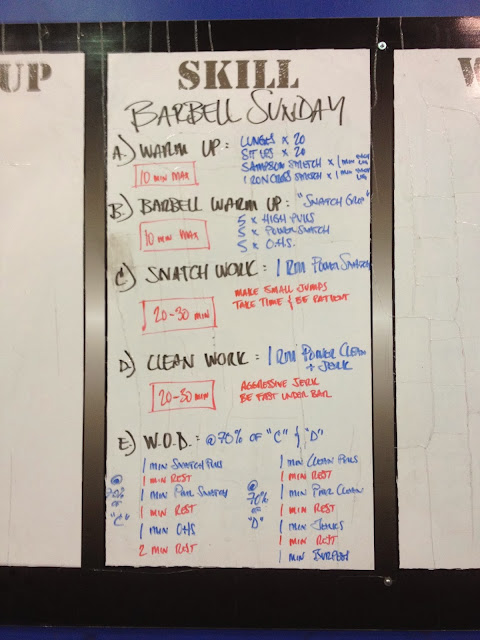 UP
SKILL
W
BARBELL SUNDAY
A.) WARM UP:
10 MIN MAX
LUNGES x 20
SIT UPS x 20
SAMPSON STRETCH x 1 MIN EACH LEG
IRON CROSS STRETCH x 1 MIN EACH LEG
B.) BARBELL WARM UP: "SNATCH GRIP"
10 MIN MAX
5 x HIGH PULLS
5 x POWER SNATCH
5 x O.H.S.
C.) SNATCH WORK: 1 RM POWER SNATCH
20-30 MIN
MAKE SMALL JUMPS
TAKE TIME & BE PATIENT
D.) CLEAN WORK: 1 RM POWER CLEAN
+ JERK
20-30 MIN
AGGRESSIVE JERK
BE FAST UNDER BAR
E.) W.O.D.: @70% OF "C" & "D"
@
70%
OF
"C"
1 MIN SNATCH PULLS
1 MIN REST
1 MIN PWR SNATCH
1 MIN REST
1 MIN OHS
2 MIN REST
@
70%
OF
"D"
1 MIN CLEAN PULLS
1 MIN REST
1 MIN PWR CLEAN
1 MIN REST
1 MIN JERKS
1 MIN REST
1 MIN BURPEES